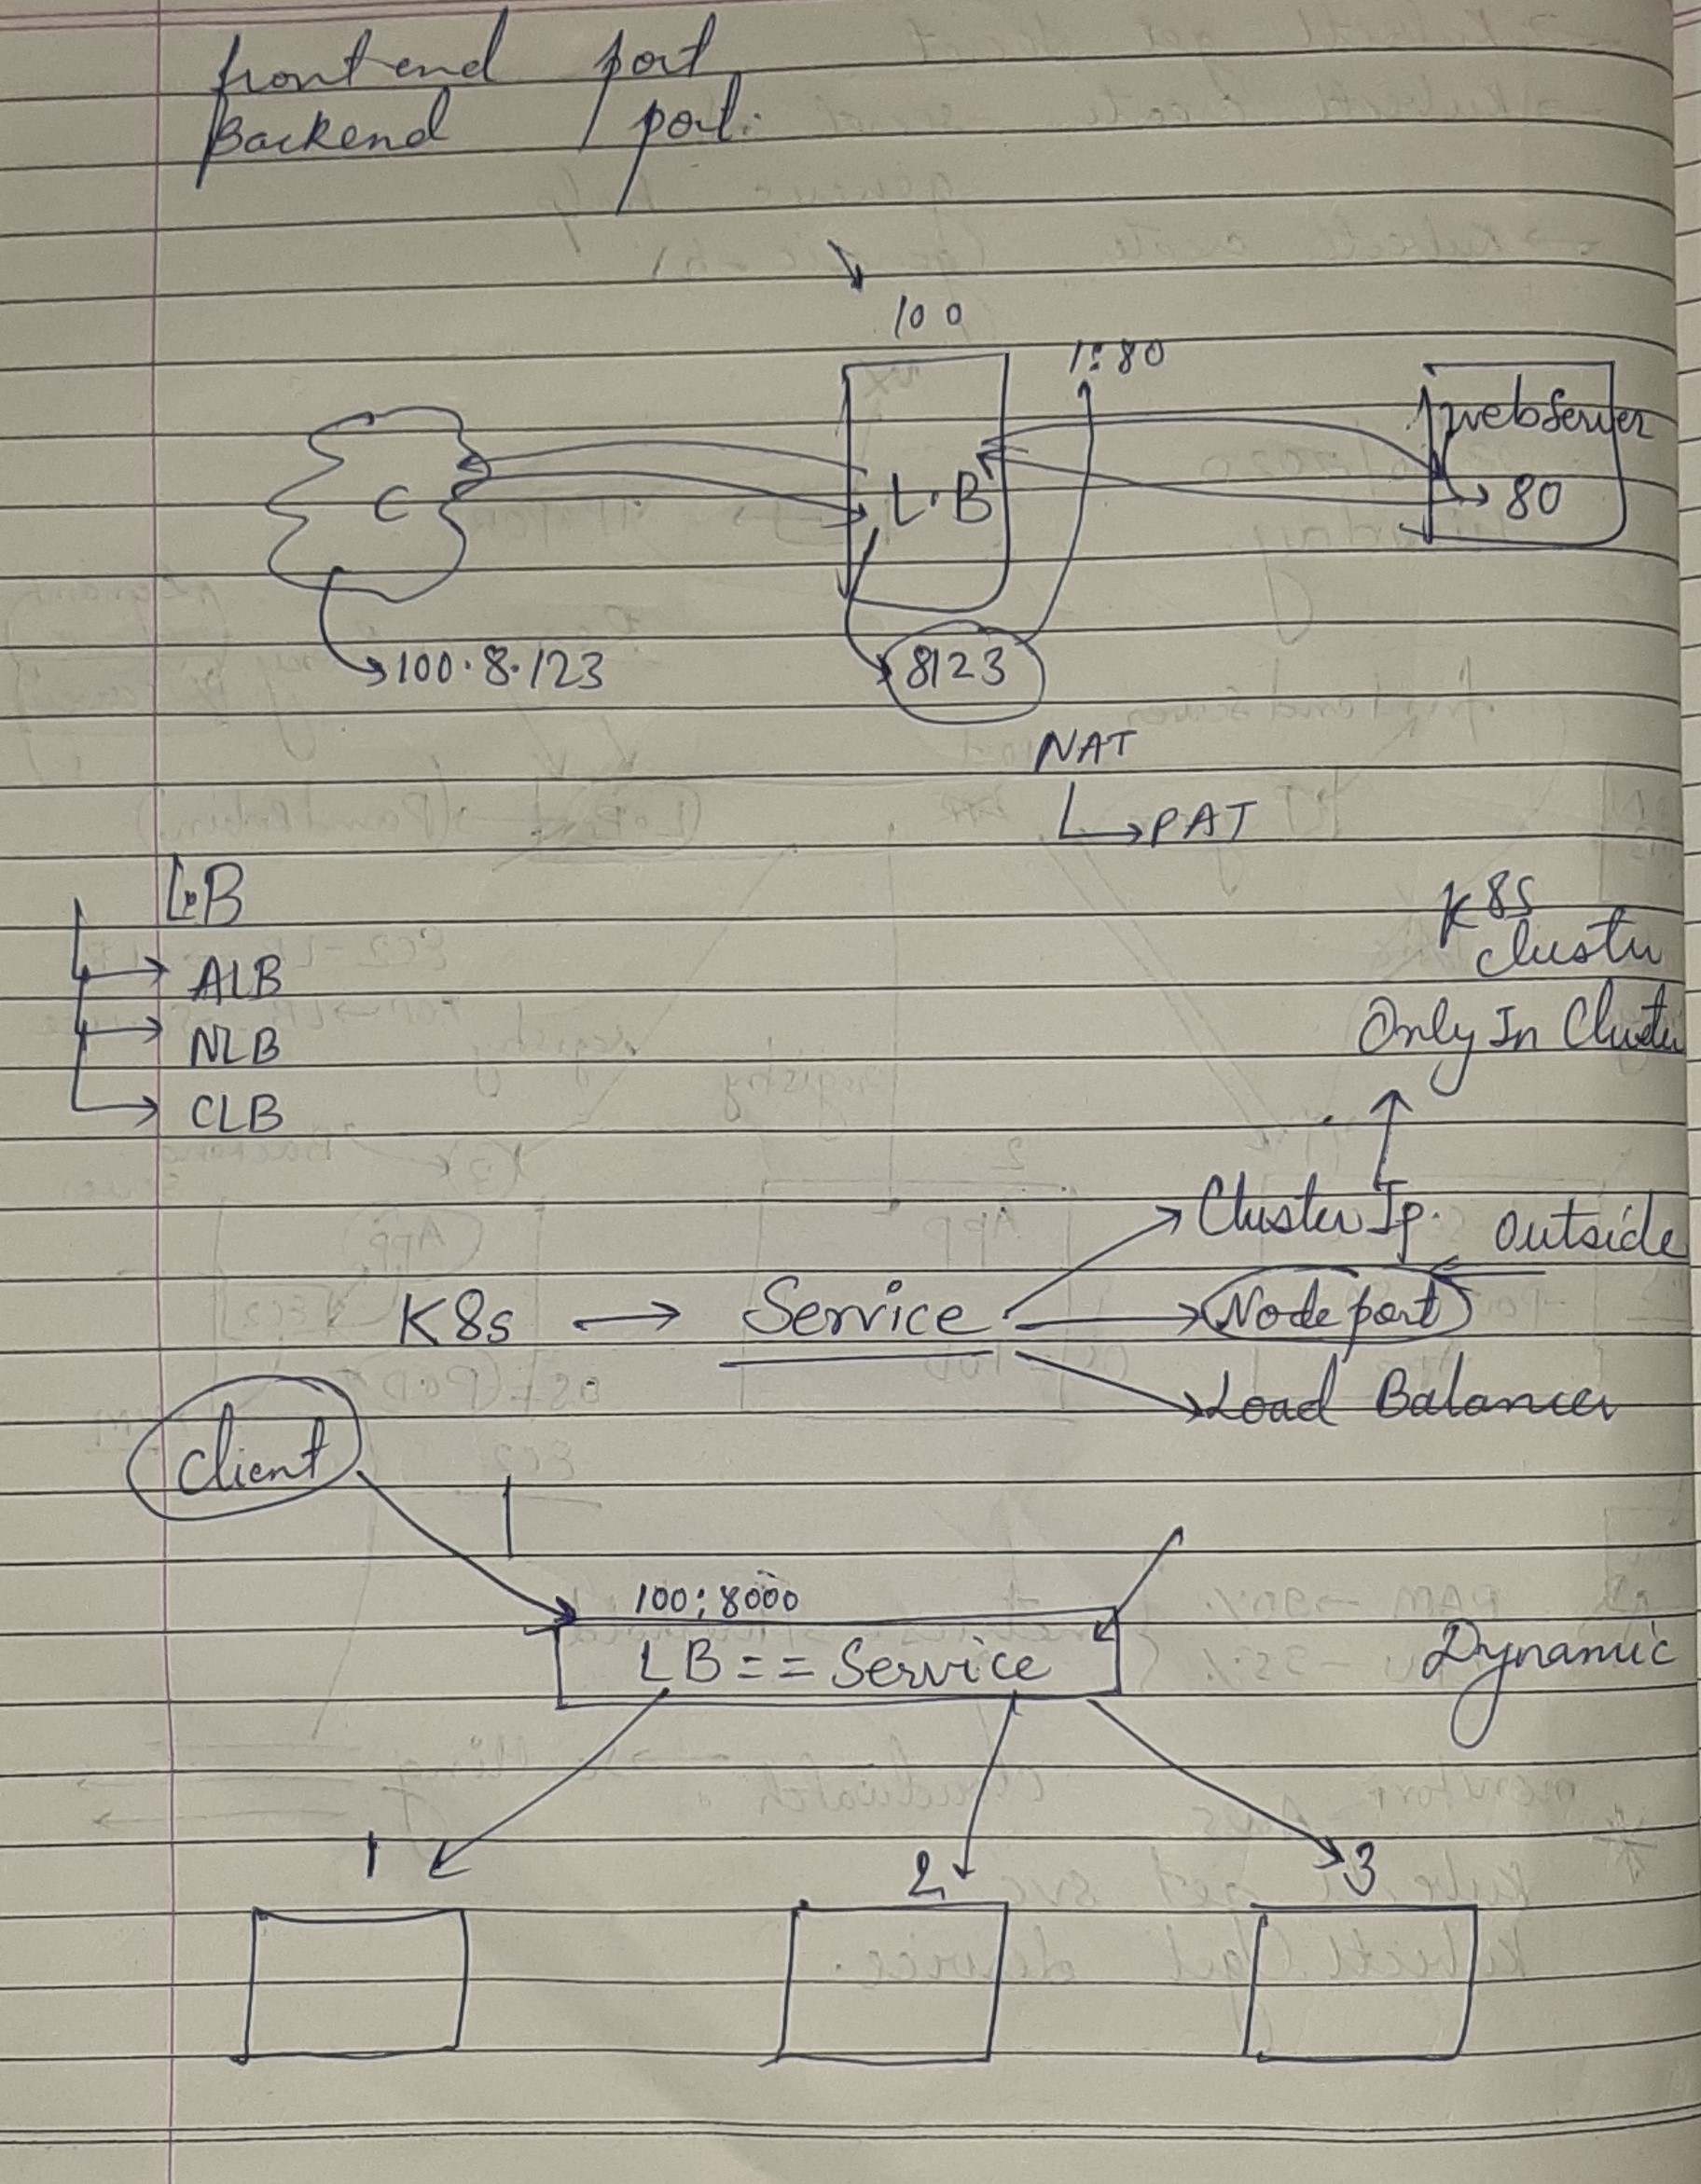 frontend port
Backend port.
100
1:80
webserver
C
L.B
80
100.8.123
8123
NAT
PAT
L.B
ALB
NLB
CLB
K8s
cluster
Only In Cluster
Cluster Ip.
Outside
K8s → Service
Nodeport
Load Balancer
Client
100:8000
LB == Service
Dynamic
1
2
3